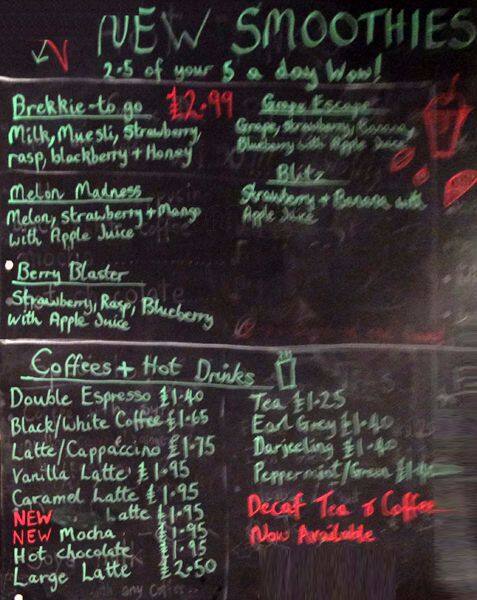 NEW SMOOTHIES
2.5 of your 5 a day Wow!
Brekkie-to go £2.99
Milk, Muesli, strawberry,
rasp, blackberry + Honey
Melon Madness
Melon, strawberry + Mango
with Apple Juice
Berry Blaster
Strawberry, Rasp, Blueberry
with Apple Juice
Grape Escape
Grape, strawberry, Banana,
Blueberry with Apple Juice
Blitz
Strawberry + Banana with
Apple Juice
Coffees + Hot Drinks
Double Espresso £1.40
Black/White Coffee £1.65
Latte/Cappaccino £1.75
Vanilla Latte £1.95
Caramel Latte £1.95
NEW Latte £1.95
NEW Mocha £1.95
Hot chocolate £1.95
Large Latte £2.50
Tea £1.25
Earl Grey £1.40
Darjeeling £1.40
Peppermint/Green
Decaf Tea & Coffee
Now Available
with any Coffee